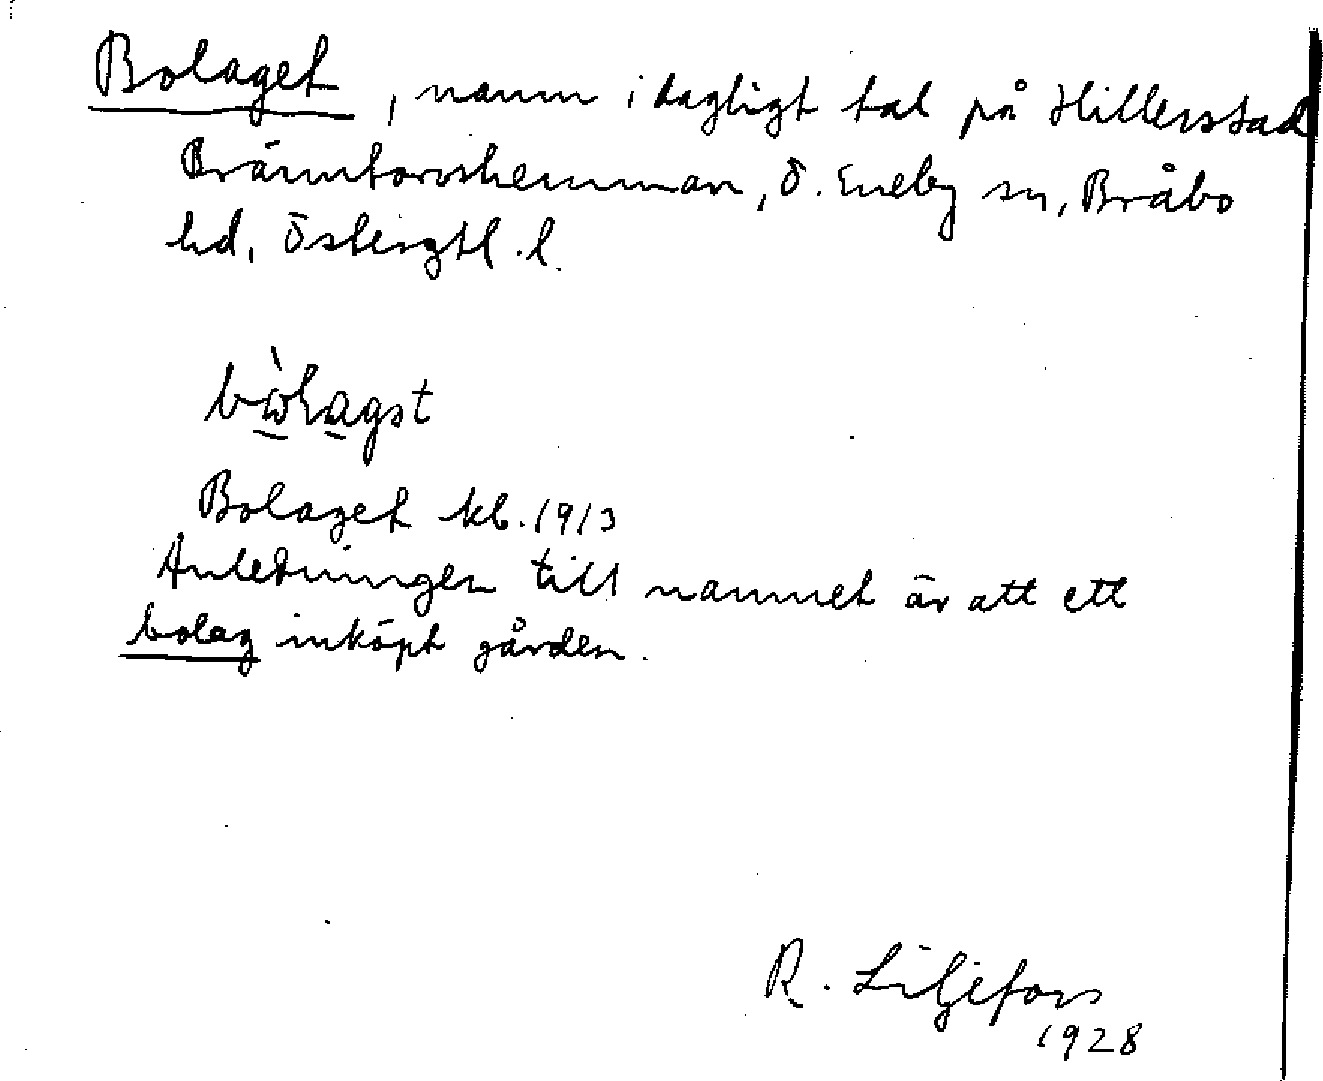 Bolaget, namn i dagligt tal på Hillerstad
Brännborvshemman, Ö. Eneby sn, Bråbo
hd, Östergtl. l.
Bolaget kb. 1913
Anledningen till namnet är att ett
bolag inköpt gården.
R. Liljefors
1928